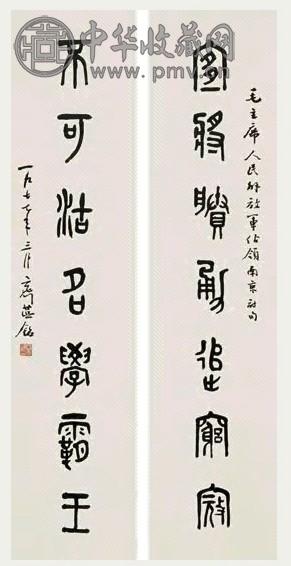 中华收藏网
www.pmv.cn
毛主席人民解放軍佔領南京詩句
宜將賸勇追窮寇
不可沽名學霸王
一九七七年三月 齊燕銘